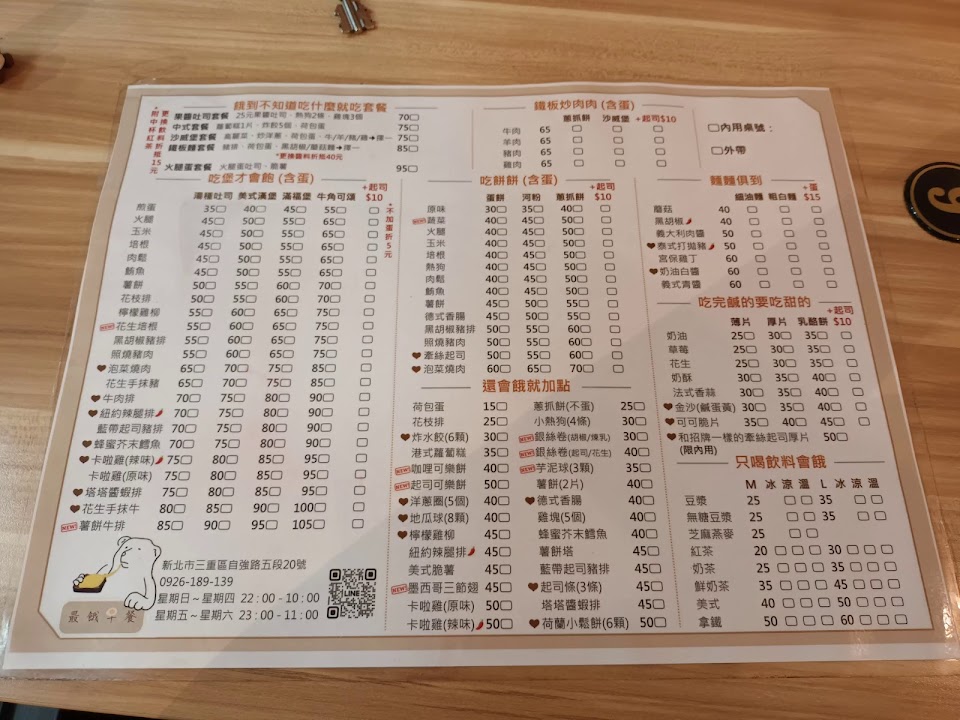 餓到不知道吃什麼就吃套餐
*更換飲料折抵15元
附中杯紅茶
果醬吐司套餐 25元果醬吐司、熱狗2條、雞塊3個 70
中式套餐 蘿蔔糕1片、炸餃5個、荷包蛋 75
沙威堡套餐 高麗菜、炒洋蔥、荷包蛋、牛/羊/豬/雞➜擇一 75
鐵板麵套餐 豬排、荷包蛋、黑胡椒/蘑菇麵➜擇一 85
*更換醬料折抵40元
火腿蛋套餐 火腿蛋吐司、脆薯 95
吃堡才會飽 (含蛋)
薄種吐司 美式漢堡 滿福堡 牛角可頌 +起司$10
*不加蛋折5元
煎蛋 35 40 45 55
火腿 45 50 55 65
玉米 45 50 55 65
培根 45 50 55 65
肉鬆 45 50 55 65
鮪魚 45 50 55 65
薯餅 50 55 60 70
花枝排 50 55 60 70
檸檬雞柳 55 60 65 75
NEW 花生培根 55 60 65 75
黑胡椒豬排 55 60 65 75
照燒豬肉 55 60 65 75
泡菜燒肉 65 70 75 85
花生手抹豬 65 70 75 85
牛肉排 70 75 80 90
紐約辣腿排 70 75 80 90
藍帶起司豬排 70 75 80 90
蜂蜜芥末鱈魚 70 75 80 90
卡啦雞(辣味) 75 80 85 95
卡啦雞(原味) 75 80 85 95
塔塔醬蝦排 75 80 85 95
花生手抹牛 80 85 90 100
NEW 薯餅牛排 85 90 95 105
最餓早餐
新北市三重區自強路五段20號
0926-189-139
星期日~星期四 22:00-10:00
星期五~星期六 23:00-11:00
LINE
鐵板炒肉肉 (含蛋)
蔥抓餅 沙威堡 +起司$10
牛肉 65
羊肉 65
豬肉 65
雞肉 65
內用桌號:
外帶
吃餅餅 (含蛋)
蛋餅 河粉 蔥抓餅 +起司$10
原味 30 35 40
NEW 蔬菜 40 45 50
火腿 40 45 50
玉米 40 45 50
培根 40 45 50
熱狗 40 45 50
肉鬆 40 45 50
鮪魚 40 45 50
薯餅 45 50 55
德式香腸 45 50 55
黑胡椒豬排 50 55 60
照燒豬肉 50 55 60
牽絲起司 50 55 60
泡菜燒肉 60 65 70
還會餓就加點
荷包蛋 15 蔥抓餅(不蛋) 25
花枝排 25 小熱狗(4條) 30
炸水餃(6顆) 30 NEW 銀絲卷(胡椒/煉乳) 30
港式蘿蔔糕 35 NEW 銀絲卷(起司/花生) 40
NEW 咖哩可樂餅 40 NEW 芋泥球(3顆) 35
NEW 起司可樂餅 50 薯餅(2片) 40
洋蔥圈(5個) 40 德式香腸 40
地瓜球(8顆) 40 雞塊(5個) 40
檸檬雞柳 40 蜂蜜芥末鱈魚 40
紐約辣腿排 45 薯餅塔 40
美式脆薯 45 藍帶起司豬排 45
NEW 墨西哥三節翅 45 起司條(3條) 45
卡啦雞(原味) 50 塔塔醬蝦排 45
卡啦雞(辣味) 50 荷蘭小鬆餅(6顆) 50
麵麵俱到
細油麵 粗白麵 +蛋$15
蘑菇 40
黑胡椒 40
義大利肉醬 50
泰式打拋豬 50
宮保雞丁 60
奶油白醬 60
義式青醬 60
吃完鹹的要吃甜的
薄片 厚片 乳酪餅 +起司$10
奶油 25 30 35
草莓 25 30 35
花生 25 30 35
奶酥 30 35 40
法式香蒜 30 35 40
金沙(鹹蛋黃) 30 35 40
可可脆片 35 40 45
和招牌一樣的牽絲起司厚片 50
(限內用)
只喝飲料會餓
M 冰 涼 溫 L 冰 涼 溫
豆漿 25 35
無糖豆漿 25 35
芝麻燕麥 25
紅茶 20 30
奶茶 25 35
鮮奶茶 35 45
美式 40 50
拿鐵 50 60